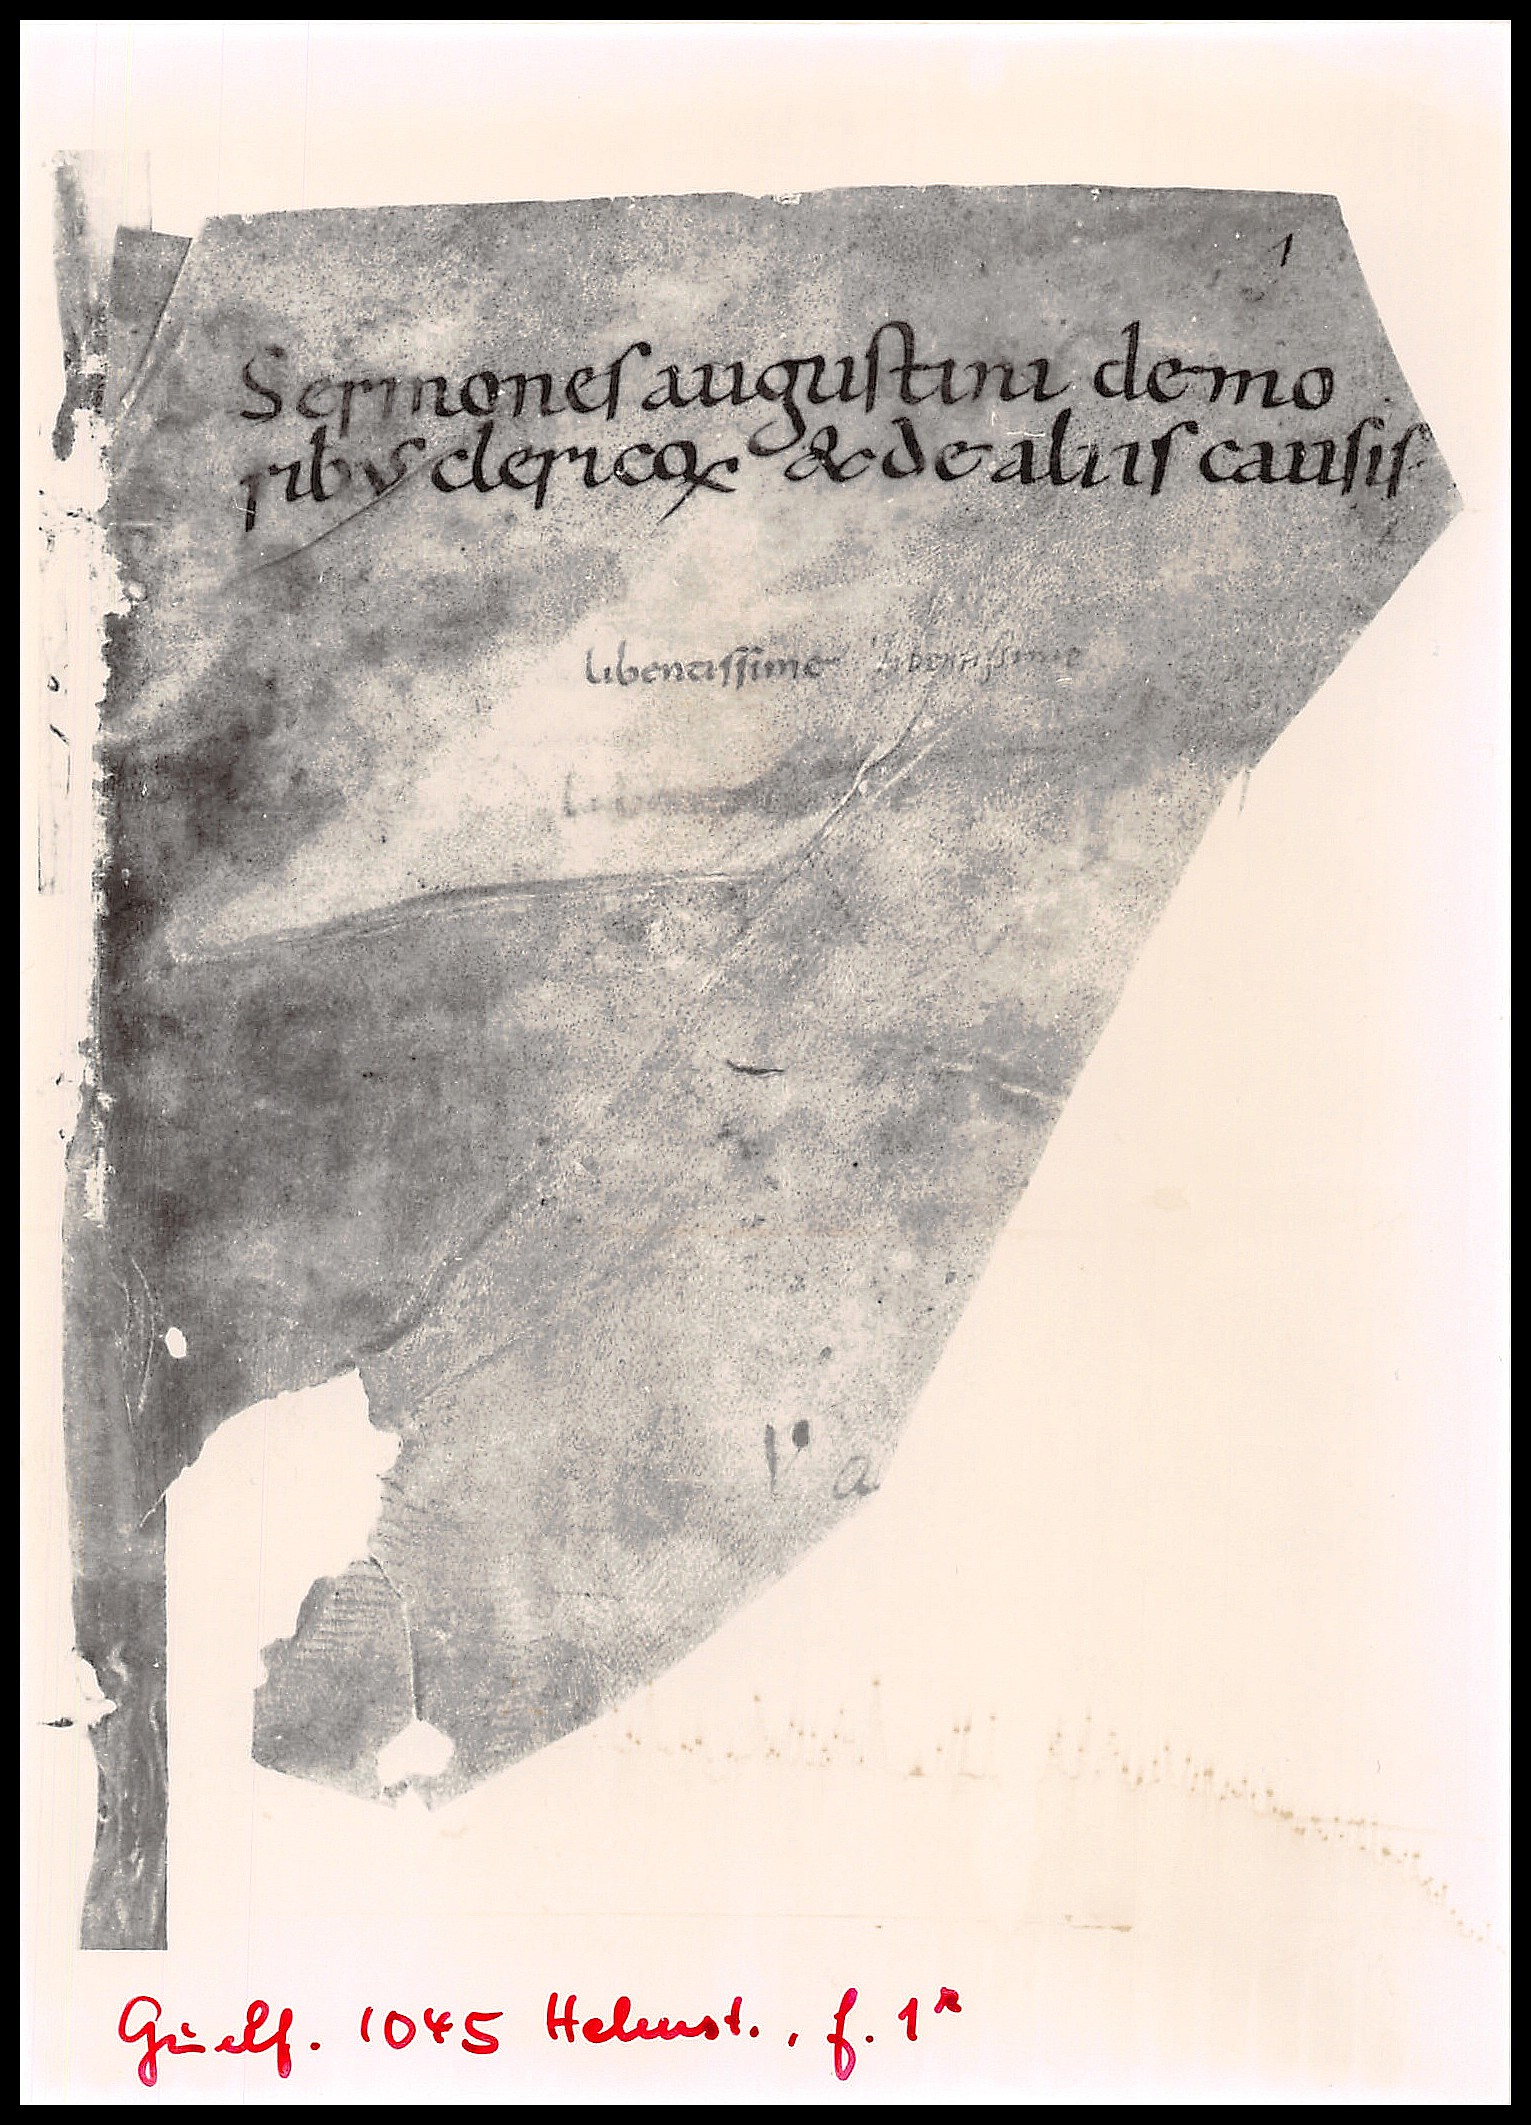 1
Sermones augustini de mo
ribus clericoꝝ & de aliis causis
libentissime libentissime
a
Guelf. 1045 Helmst., f. 1r